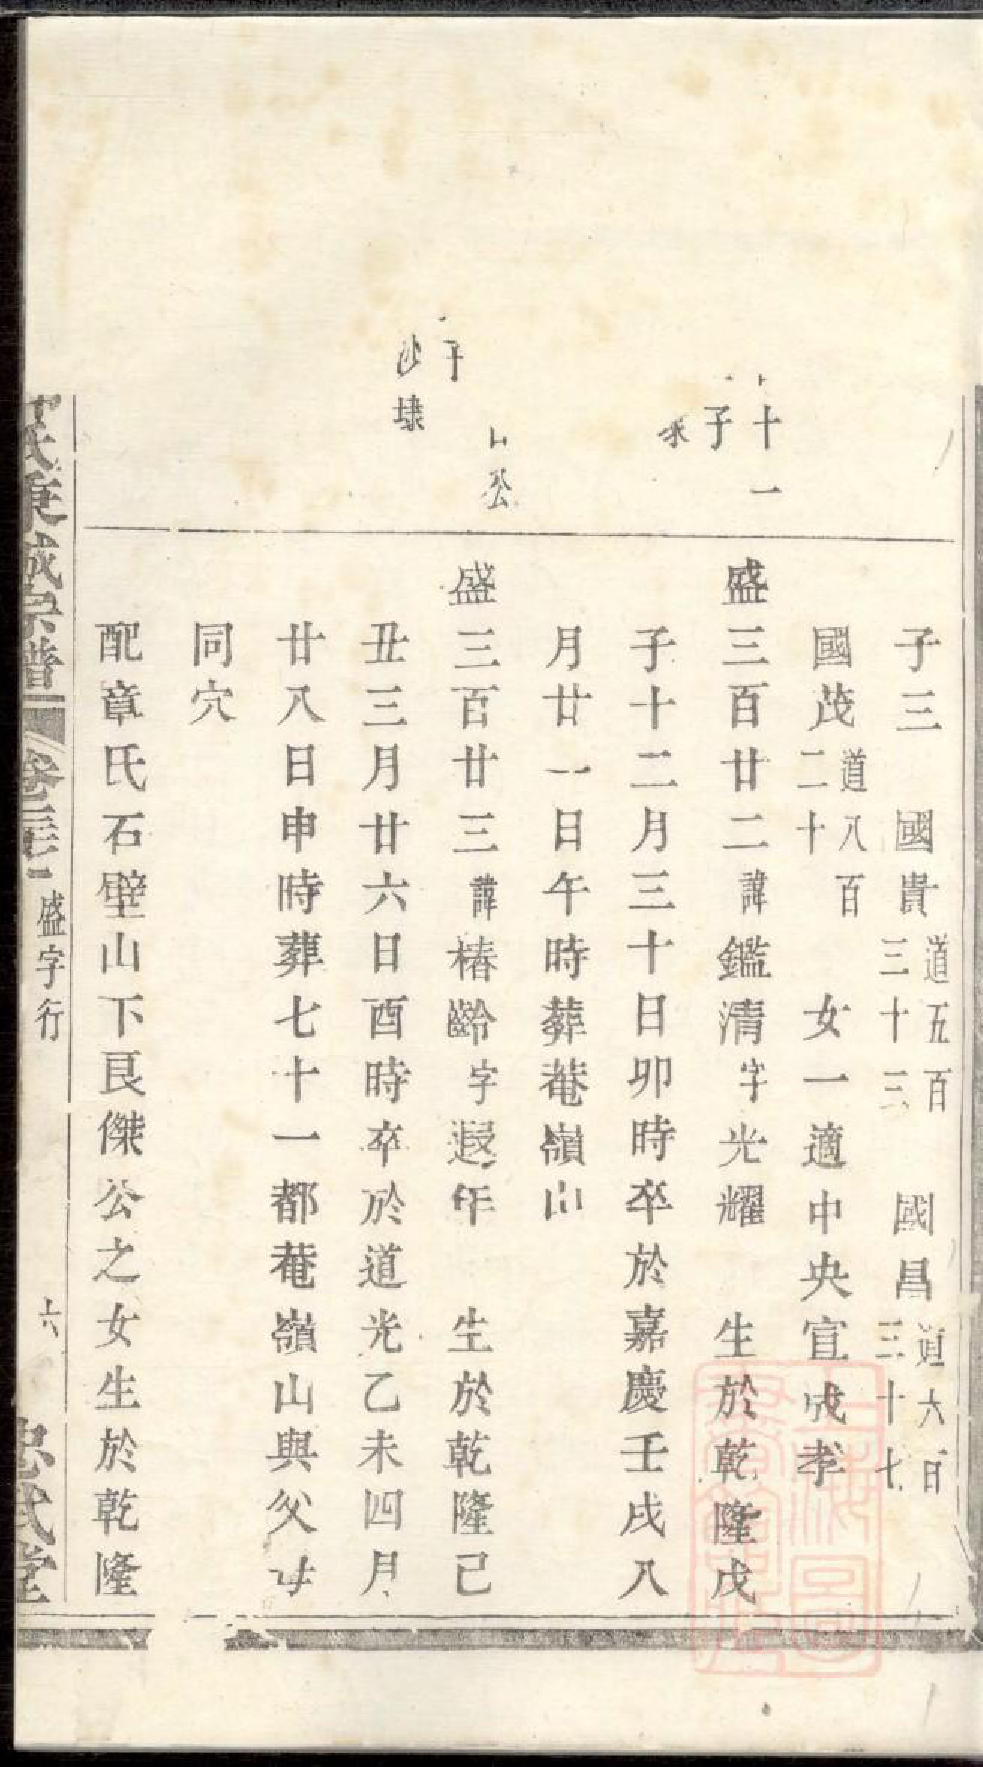 十一
子
公
子
沙
埭
子三 國貴道五百三十三 國昌道六百三十七
國茂道八百二十 女一適中央宣成孝
盛三百廿二諱鑑清字光耀 生於乾隆戊
子十二月三十日卯時卒於嘉慶壬戌八
月廿一日午時葬菴嶺山
盛三百廿三諱椿齡字遐年 生於乾隆己
丑三月廿六日酉時卒於道光乙未四月
廿八日申時葬七十一都菴嶺山與父母
同穴
配章氏石壁山下艮傑公之女生於乾隆
氏東城宗譜 卷三 盛字行 六